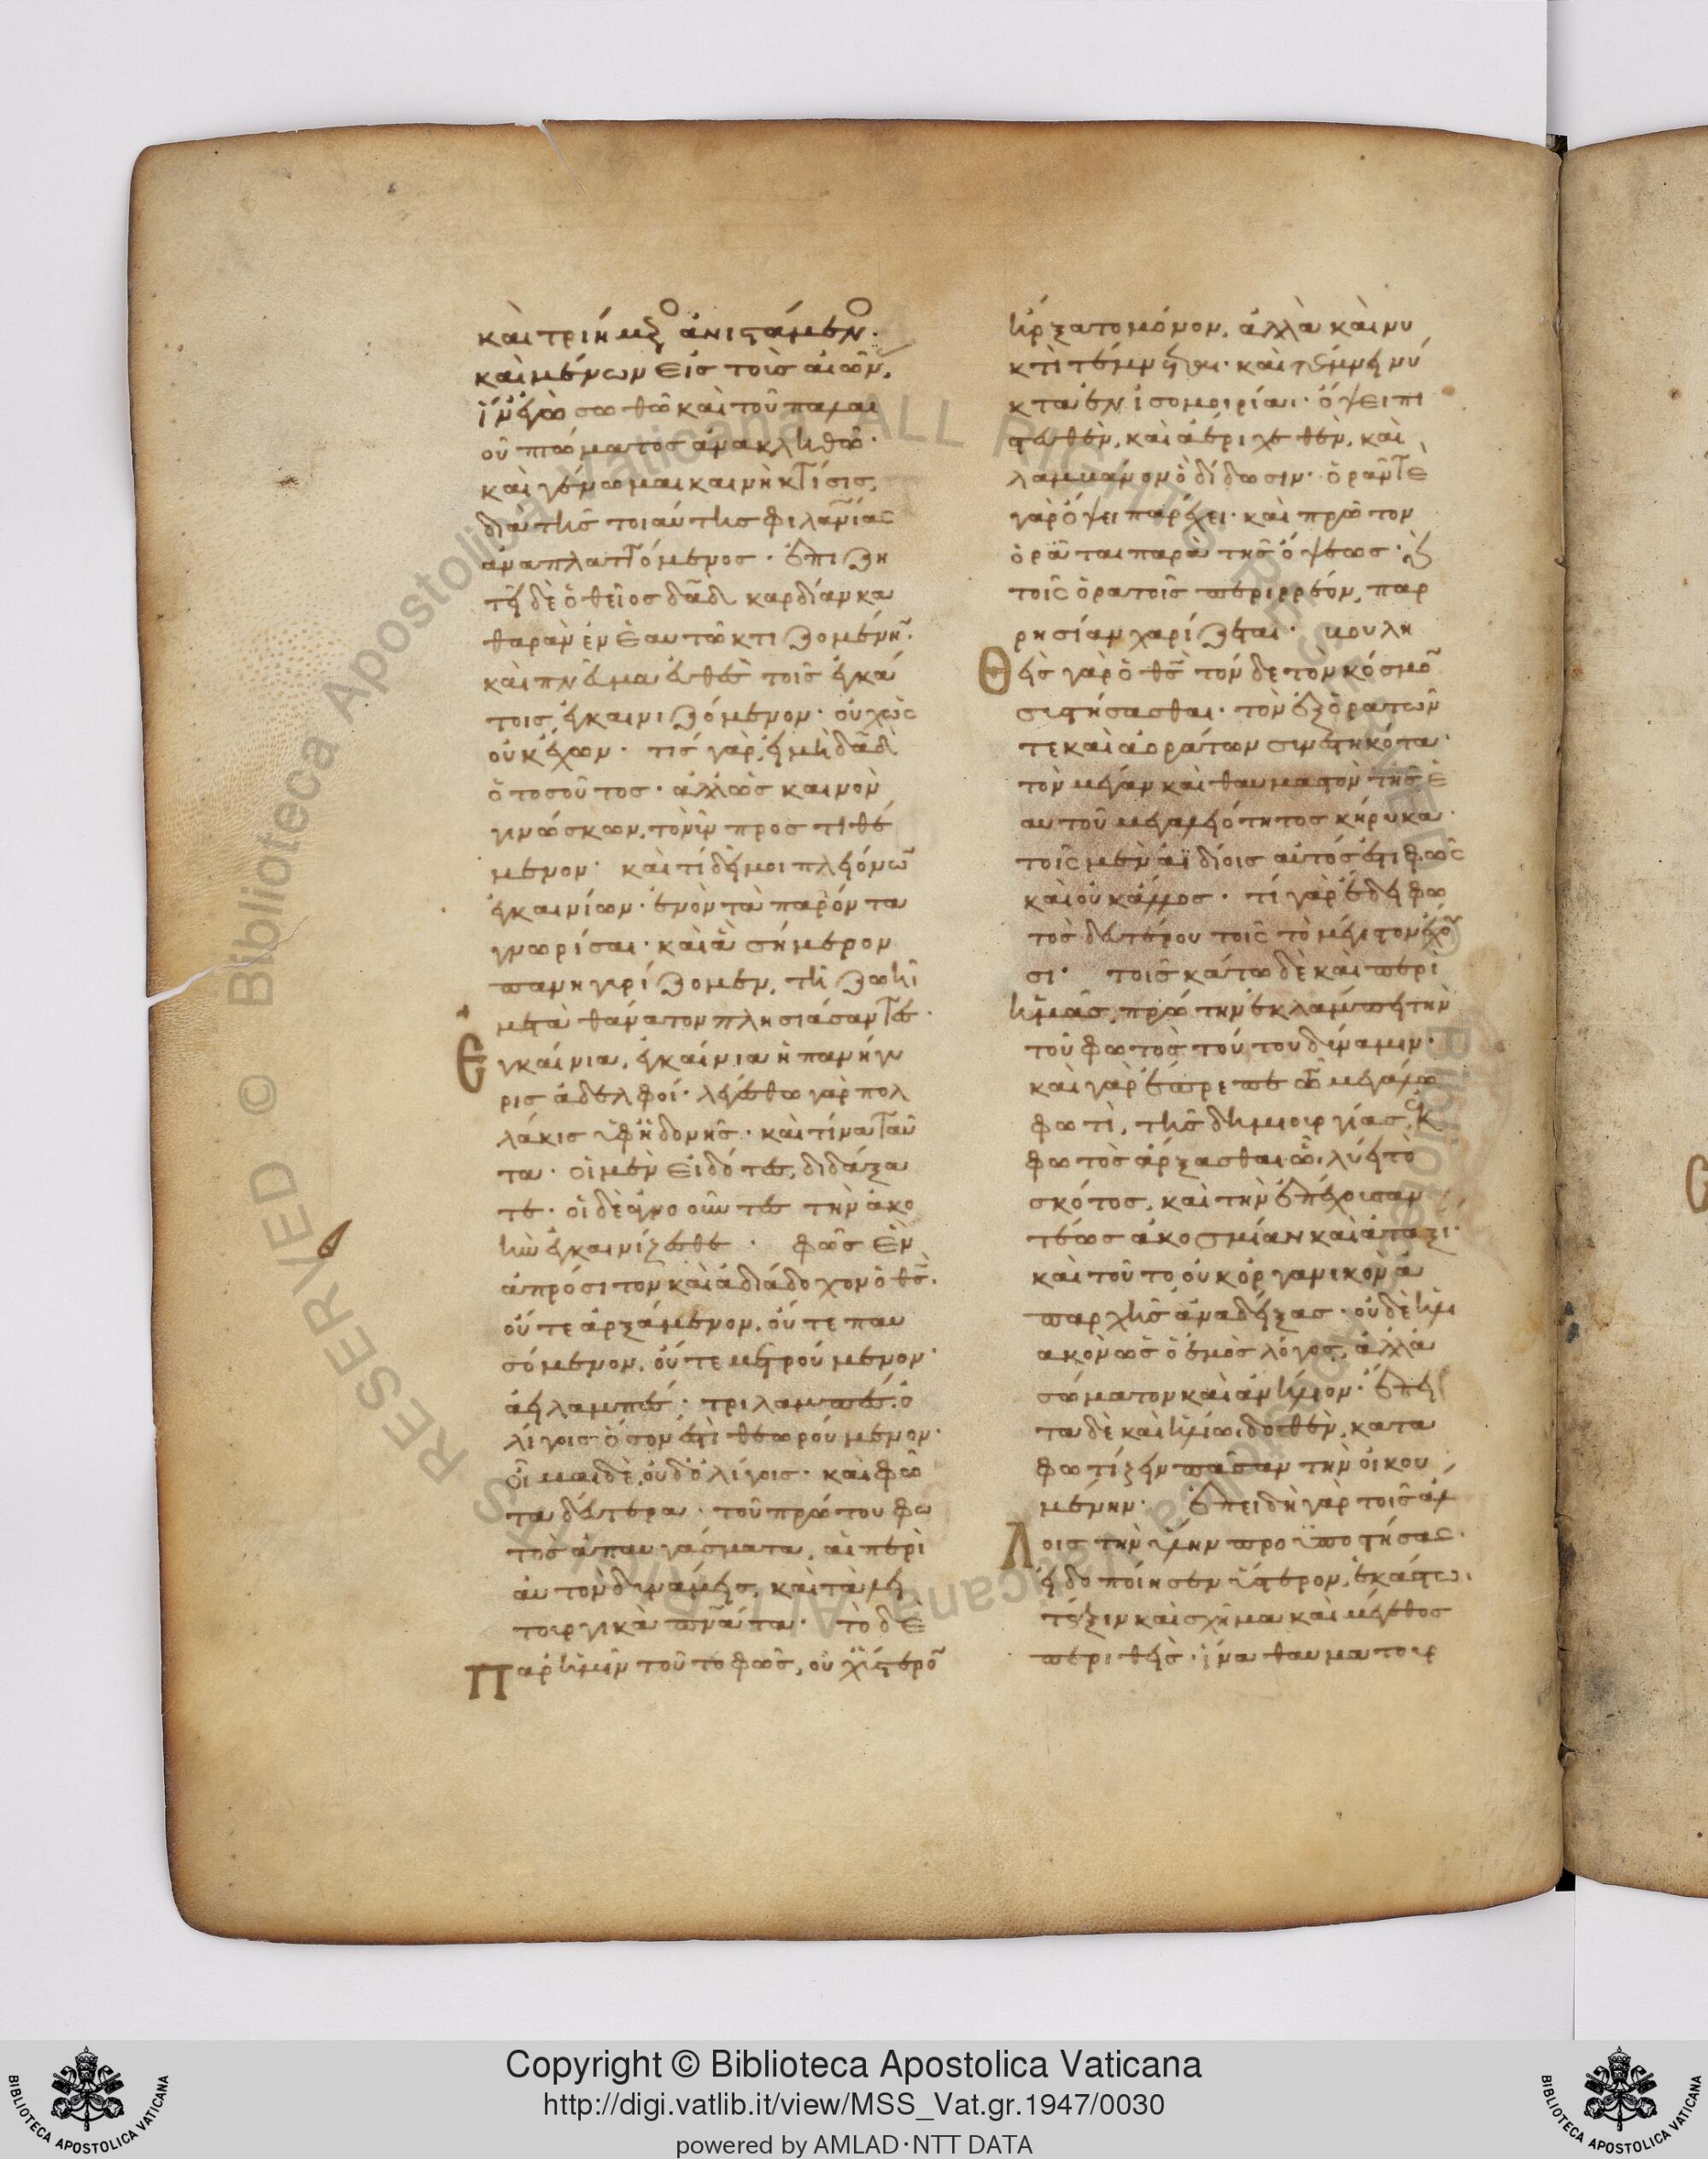 καὶ τριήμερος ἀνιστάμενος·
καὶ μένων εἰς τοὺς αἰῶνας,
ἵν' ἐγὼ σωθῶ καὶ τοῦ παλαι
οῦ πτώματος ἀνακληθῶ·
καὶ γένωμαι καινὴ κτίσις,
διὰ τῆς τοιαύτης φιλανίας
ἀναπλαττόμενος· ἐπιζη
τεῖ δὲ ὁ θεῖος δᾶδ καρδίαν κα
θαρὰν ἐν ἑαυτῶ κτιζομένην·
καὶ πνεῦμα εὐθὲς τοῖς ἐγκά
τοις ἐγκαινιζόμενον· οὐχ ὡς
οὐκ ἔχων· τίς γὰρ, εἰ μὴ δᾶδ
ὁ τοσοῦτος· ἀλλ' ὡς καινὸν
γινώσκων, τὸ νῦν προστιθέ
μενον· καὶ τί δεῖ μοι πλειόνων
ἐγκαινίων· ἐνὸν τὰ παρόντα
γνωρίσαι· καὶ ἃ σήμερον
πανηγυρίζομεν, τῆ ζωῆ
μετὰ θάνατον πλησιάσαντες·
Εγκαίνια, ἐγκαίνια ἡ πανήγυ
ρις ἀδελφοί· λεγέσθω γὰρ πολ
λάκις ὑφ' ἡδονῆς· καὶ τίνα ταῦ
τα· οἱ μὲν εἰδότες, διδάξα
τε· οἱ δὲ ἀγνοοῦντες τὴν ἀκο
ὴν ἐγκαινίζεσθε· φῶς ἓν
ἀπρόσιτον καὶ ἀδιάδοχον ὁ θς·
οὔτε ἀρξάμενον, οὔτε παυ
σόμενον, οὔτε μετρούμενον·
ἀειλαμπές· τριλαμπές· ὀ
λίγοις ὅσον ἐστὶ θεωρούμενον·
οἶμαι δὲ, οὐδ' ὀλίγοις· καὶ φῶ
τα δεύτερα· τοῦ πρώτου φω
τὸς ἀπαυγάσματα, αἱ περὶ
αὐτὸν δυνάμεις, καὶ τὰ λει
τουργικὰ πνᾶτα· τὸ δὲ
Παρ' ἡμῖν τοῦτο φῶς, οὐχ ὕστερον
ἤρξατο μόνον, ἀλλὰ καὶ νυ
κτὶ τέμνεται· καὶ τέμνει νύ
κτα ἐν ἰσομοιρίαι· ὄψει πι
στευθὲν, καὶ ἀέρι χεθὲν, καὶ
λαμβάνον ὃ δίδωσιν· ὁρᾶν τε
γὰρ ὄψει παρέχει· καὶ πρῶτον
ὁρᾶται παρὰ τῆς ὄψεως· καὶ
τοῖς ὁρατοῖς περιρρέον, παρ
ρησίαν χαρίζεται· βουλη
Θεὶς γὰρ ὁ θς τόνδε τὸν κόσμον
συστήσασθαι· τὸν ἐξ ὁρατῶν
τε καὶ ἀοράτων συνεστηκότα·
τὸν μέγαν καὶ θαυμαστὸν τῆς ἑ
αυτοῦ μεγαλειότητος κήρυκα·
τοῖς μὲν ἀϊδίοις αὐτός ἐστι φῶς
καὶ οὐκ ἄλλος· τί γὰρ ἔδει φω
τὸς δευτέρου τοῖς τὸ μέγιστον ἔχου
σι· τοῖς κάτω δὲ καὶ περὶ
ἡμᾶς, πρώτην ἐκλάμπει τὴν
τοῦ φωτὸς τούτου δύναμιν·
καὶ γὰρ ἔπρεπε τῶ μεγάλω
φωτὶ, τῆς δημιουργίας ἐκ
φωτὸς ἄρξασθαι ὧ λύει τὸ
σκότος, καὶ τὴν ἐπέχουσαν
τέως ἀκοσμίαν καὶ ἀταξί·
καὶ τοῦτο οὐκ ὀργανικὸν ἀ
παρχῆς ἀναδείξας· οὐδὲ ἡλι
ακὸν ὡς ὁ ἐμὸς λόγος, ἀλλὰ
σώματον καὶ ἀνήλιον· ἔπει
τα δὲ καὶ ἡλίωι δοθὲν, κατα
φωτίζειν πᾶσαν τὴν οἰκου
μένην· ἐπειδὴ γὰρ τοῖς ἄλ
Λοις τὴν ὕλην προϋποστήσας·
εἰδοποίησεν ὕστερον, ἑκάστω
τάξιν καὶ σχῆμα καὶ μέγεθος
περιθείς· ἵνα θαυματουρ
Copyright © Biblioteca Apostolica Vaticana
http://digi.vatlib.it/view/MSS_Vat.gr.1947/0030
powered by AMLAD·NTT DATA
BIBLIOTECA APOSTOLICA VATICANA
BIBLIOTECA APOSTOLICA VATICANA